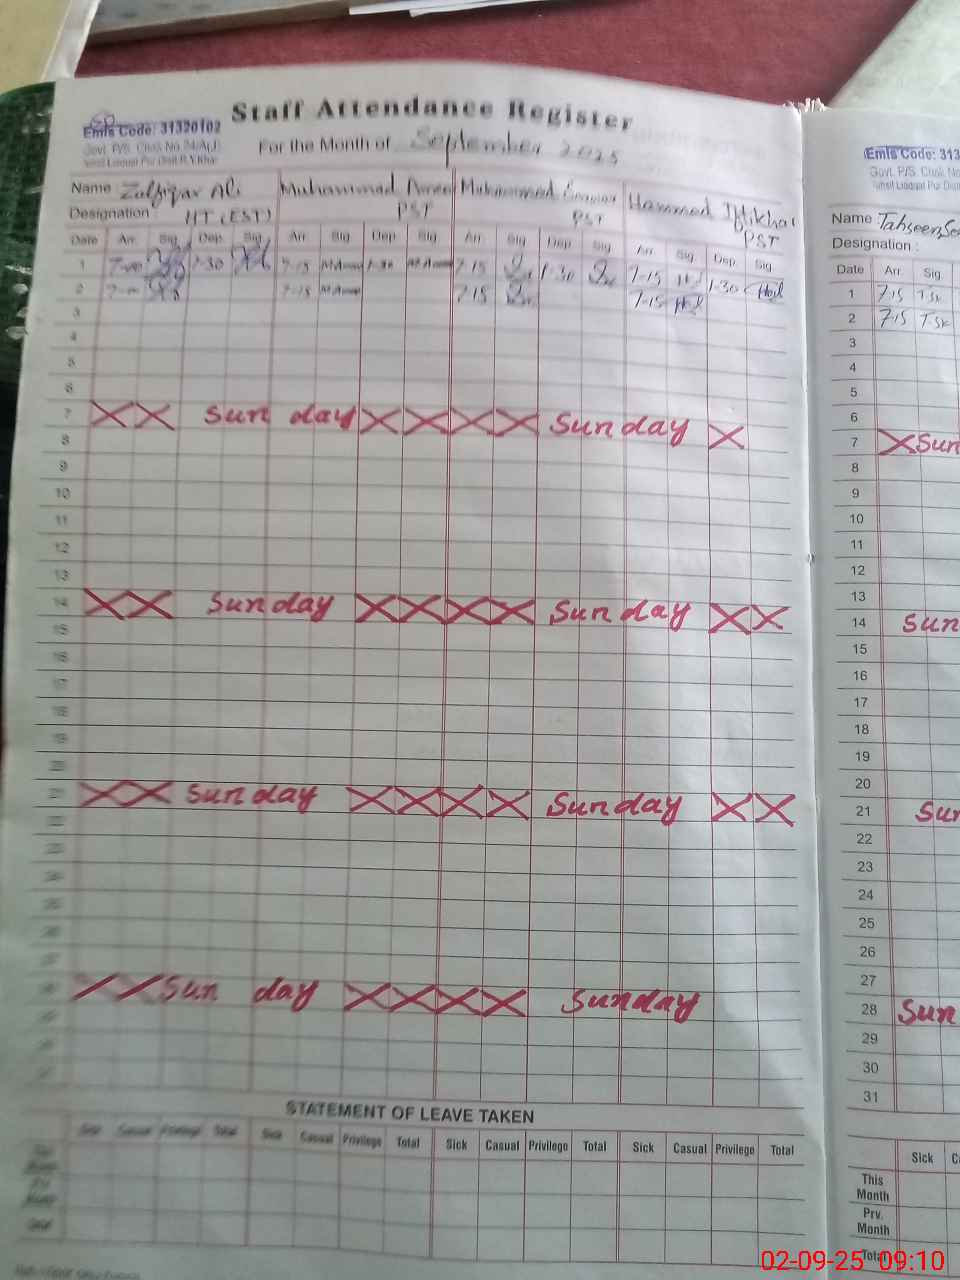 Staff Attendance Register
Emis Code: 31320102
Govt. P/S. Chak No.
For the Month of September 2025
Name Zulfiqar Ali Muhammad Muhammad Hammad Iftikhar
Designation : HT (EST) PST PST PST
Date Arr. Sig. Dep. Sig. Arr. Sig. Dep. Sig. Arr. Sig. Dep. Sig. Arr. Sig. Dep. Sig.
1 7-00 1-30 7-15 1-30 7-15 1-30 7-15 1-30
2 7-00 7-15 7-15 7-15
3
4
5
6
7 Sunday Sunday
8
9
10
11
12
13
14 Sunday Sunday
15
16
17
18
19
20
21 Sunday Sunday
22
23
24
25
26
27
28 Sunday Sunday
STATEMENT OF LEAVE TAKEN
Sick Casual Privilege Total Sick Casual Privilege Total Sick Casual Privilege Total Sick Casual Privilege Total
Emis Code: 313
Govt. P/S. Chak No
Name : Tahseen
Designation :
Date Arr. Sig.
1 7-15 T.sk
2 7-15 T.sk
3
4
5
6
7 Sun
8
9
10
11
12
13
14 Sun
15
16
17
18
19
20
21 Sun
22
23
24
25
26
27
28 Sun
29
30
31
Sick
This Month
Prv. Month
Total
02-09-25 09:10